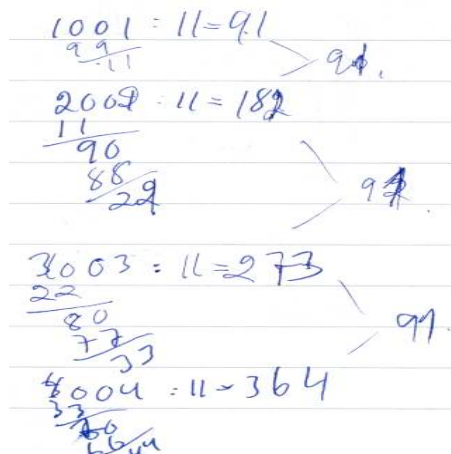 1001 : 11 = 91
99
11
91.
2002 : 11 = 182
11
90
88
22
91.
3003 : 11 = 273
22
80
77
33
91.
4004 : 11 = 364
33